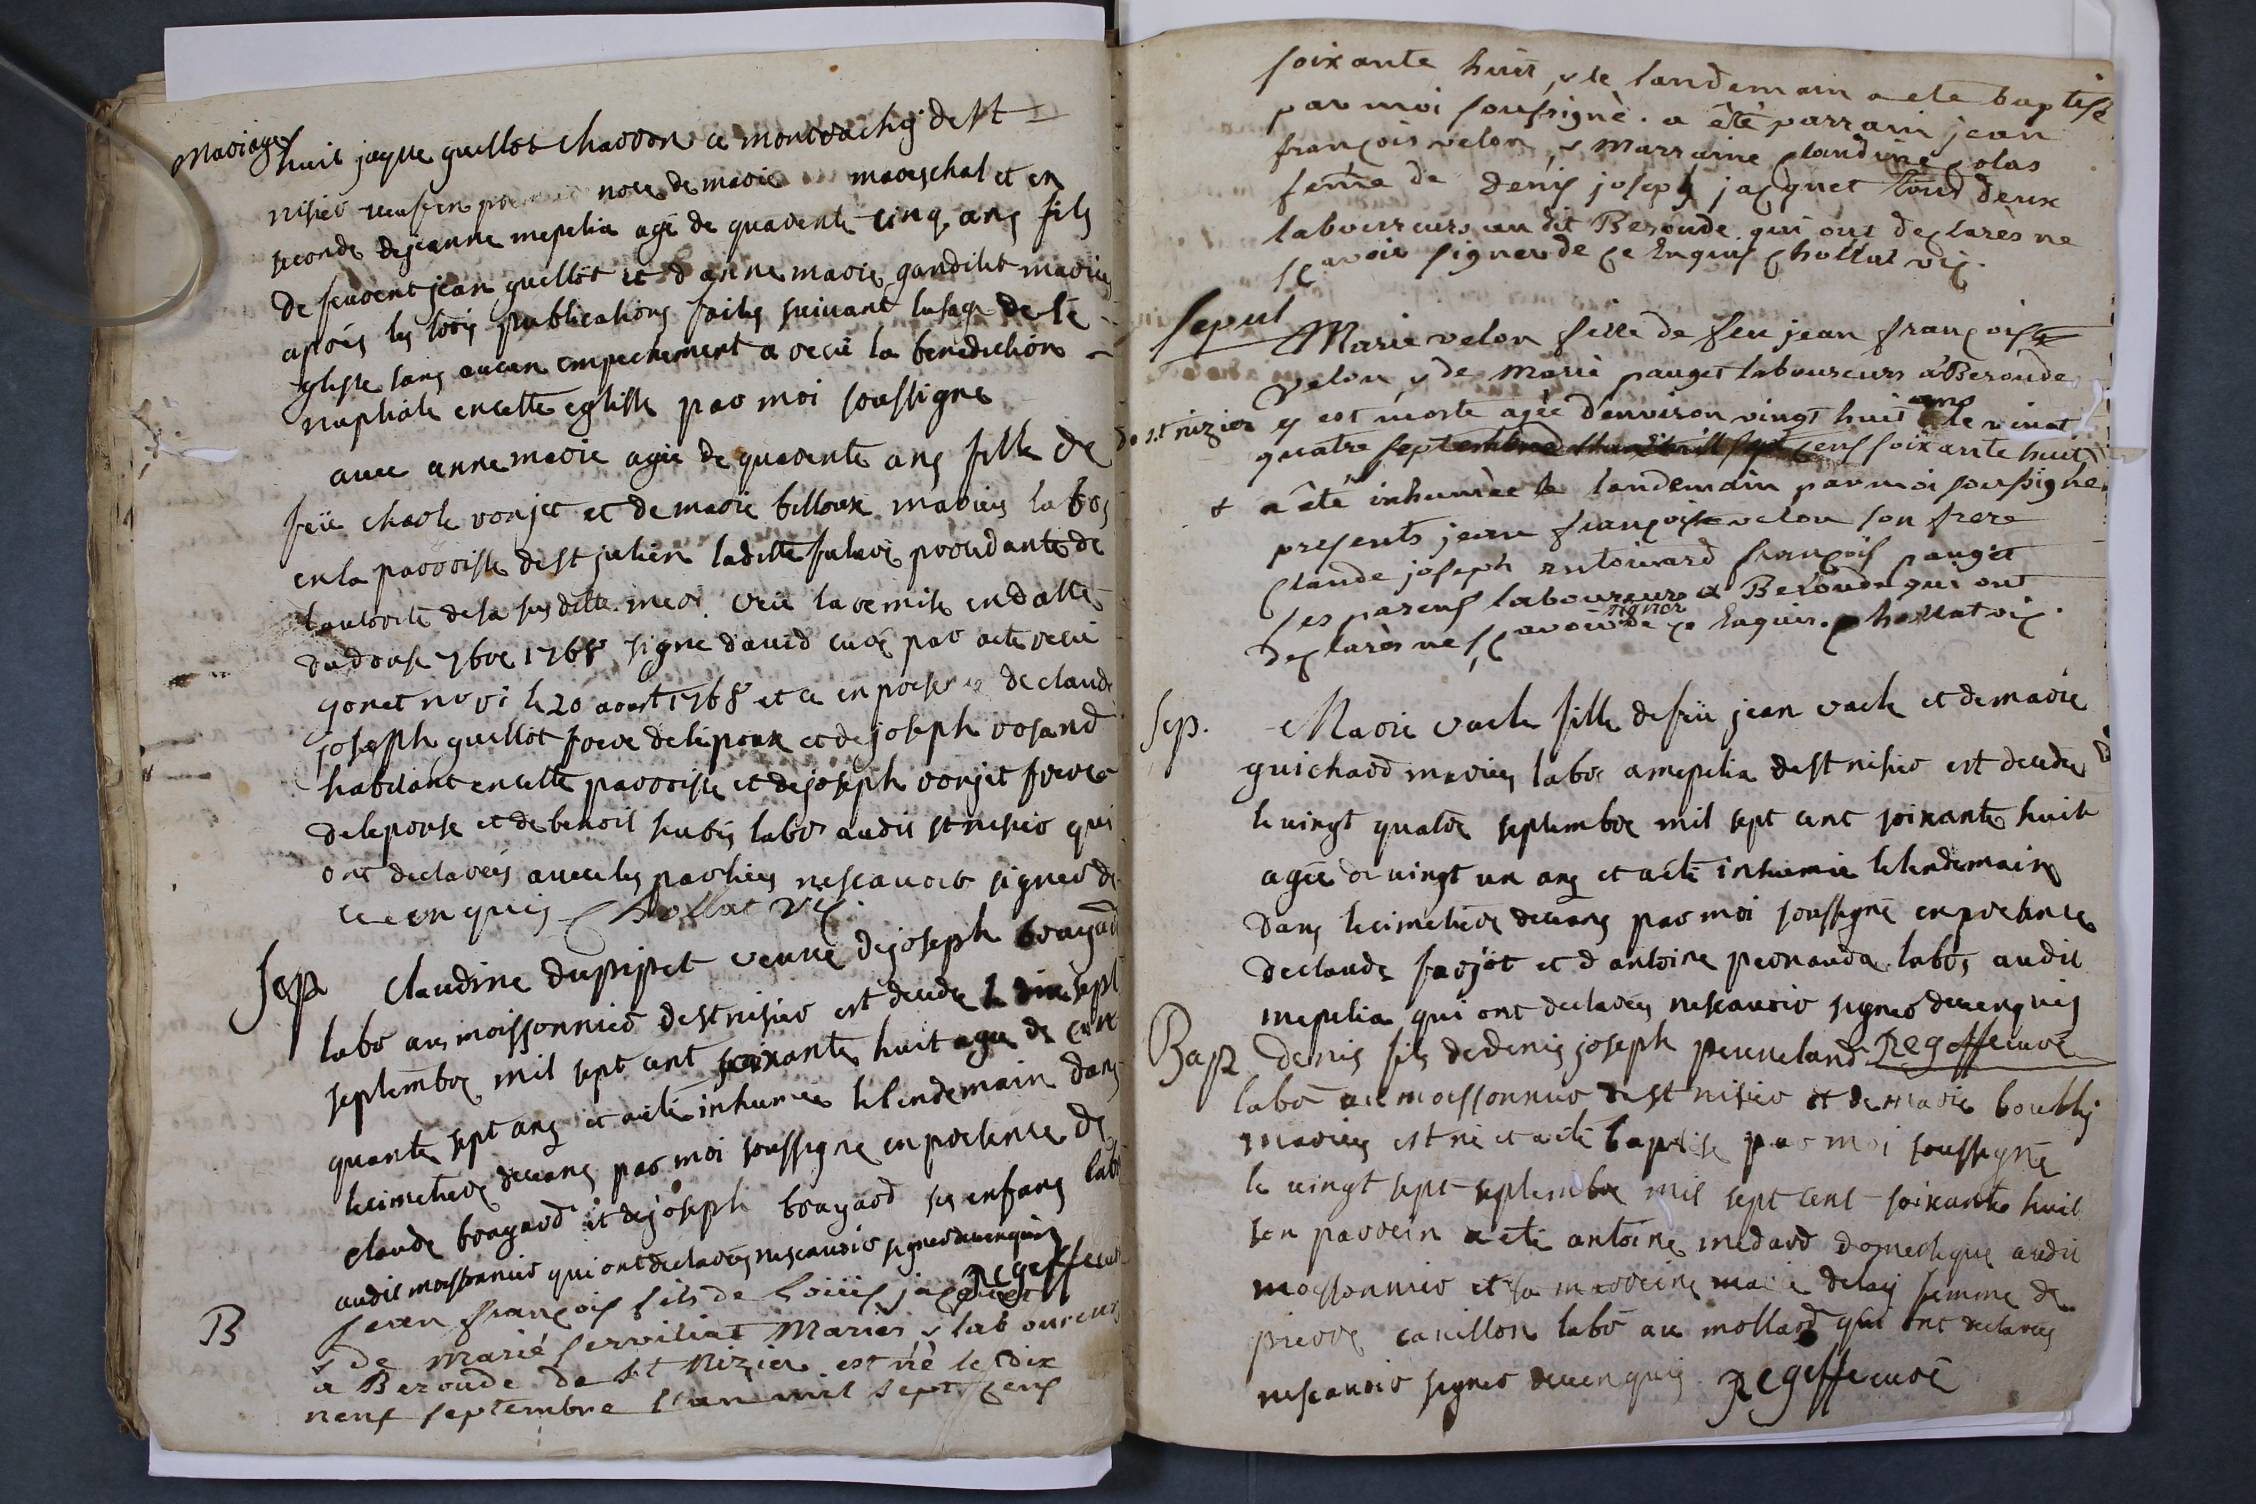 Mariage
huit jaque guillot charron a montrachy de st
nisier veuf en pre nôce de marie mareschal et en
seconde de jeanne mepelia agé de quarente cinq ans fils
de feu jean guillot et d'anne marie gandilet mariés
après les trois publications faites suivant lusage de le
glisse sans aucun empechement a reçu la benediction
nuptiale en cette eglisse par moi soussigne
avec anne marie agée de quarente ans fille de
feüe charle vonjet et de marie billoux mariés labos
en la parroisse de st julien laditte procedante de
l'autorité de sa susditte mere veü la remise en datte
du douse 7bre 1768 signé david curé par acte recü
gonet le 20 aoust 1768 et ce en presence de claude
joseph guillot frere de lepoux et de joseph rosand
habitant en cette parroisse et de joseph vonjet frere
de lepouse et de benoit labor audit st nisier qui
ont declarés avec les parties ne scavoir signer de
ce enquis Chollat vic.
Sep Claudine dupipet veuve de joseph brayard
labo au moissonnier de st nisier est decedée le dix sept
septembre mil sept cent soixante huit agée de cin
quante sept ans et a été inhumée le lendemain dans
le cimetiere deceans par moi soussigne en presence de
claude brayard et de joseph brayard ses enfans labo
audit moissonnier qui ont declarés ne scavoir signer de ce enquis
Regeffe curé
B Jean françois fils de Loüis jacquet
& de marie serviliat Mariés & laboureurs
a Beroude de st Nizier est né le dix
neuf septembre l'an mil sept cens
soixante huit & le landemain a été baptisé
par moi soussigné. a été parrain jean
françois velon, & Marraine claudine colas
femme de denis joseph jacquet tous deux
laboureurs au dit Beroude qui ont declarés ne
scavoir signer de ce Enquis chollat vic.
sepul Marie velon fille de feu jean françois
velon & de Marie pauget laboureurs à Beroude
de st nizier y est morte agée d'environ vingt huit ans le vingt
quatre septembre cens soixante huit
& a été inhumée le landemain par moi soussigné
presents jean françois velon son frere
Claude joseph entouvard françois pauget
ses parens laboureurs a Beroude qui ont
declarés ne scavoir signer de ce Enquis. chollat vic
Sep. Marie vack fille de feü jean vack et de marie
guichard mariés labor a mepelia de st nisier est decedée
le vingt quatre septembre mil sept cent soixante huit
agée de vingt un ans et a été inhumée le lendemain
dans le cimetiere deceans par moi soussigné en presence
de claude farjot et d'antoine peonauda labos audit
mepelia qui ont declarés ne scavoir signer de ce enquis
Regeffe curé
Bap denis fils de denis joseph peuveland
labo au moissonnier de st nisier et de marie boubly
mariés est né et a été baptise par moi soussigné
le vingt sept septembre mil sept cent soixante huit
son parrein a été antoine medard domestique audit
moissonnier et sa marreine marie delay femme de
pierre cavillon labo au mollard qui ont declarés
ne scavoir signer de ce enquis Regeffe curé